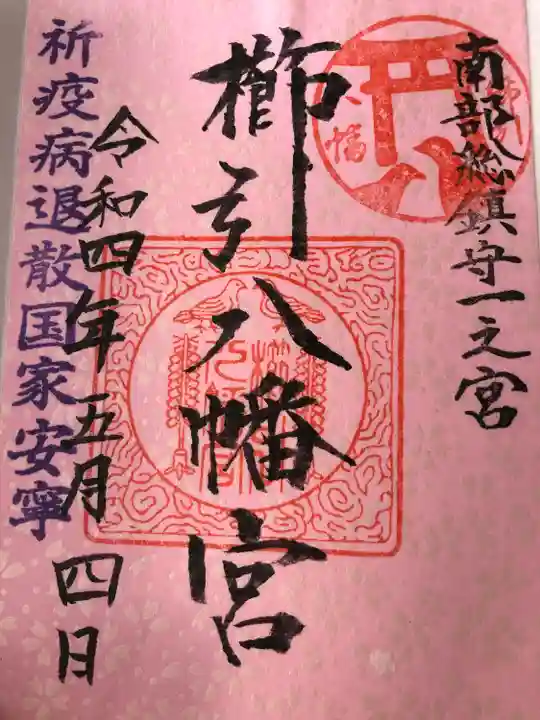 南部総鎮守一之宮
櫛引八幡宮
令和四年五月四日
祈疫病退散国家安寧